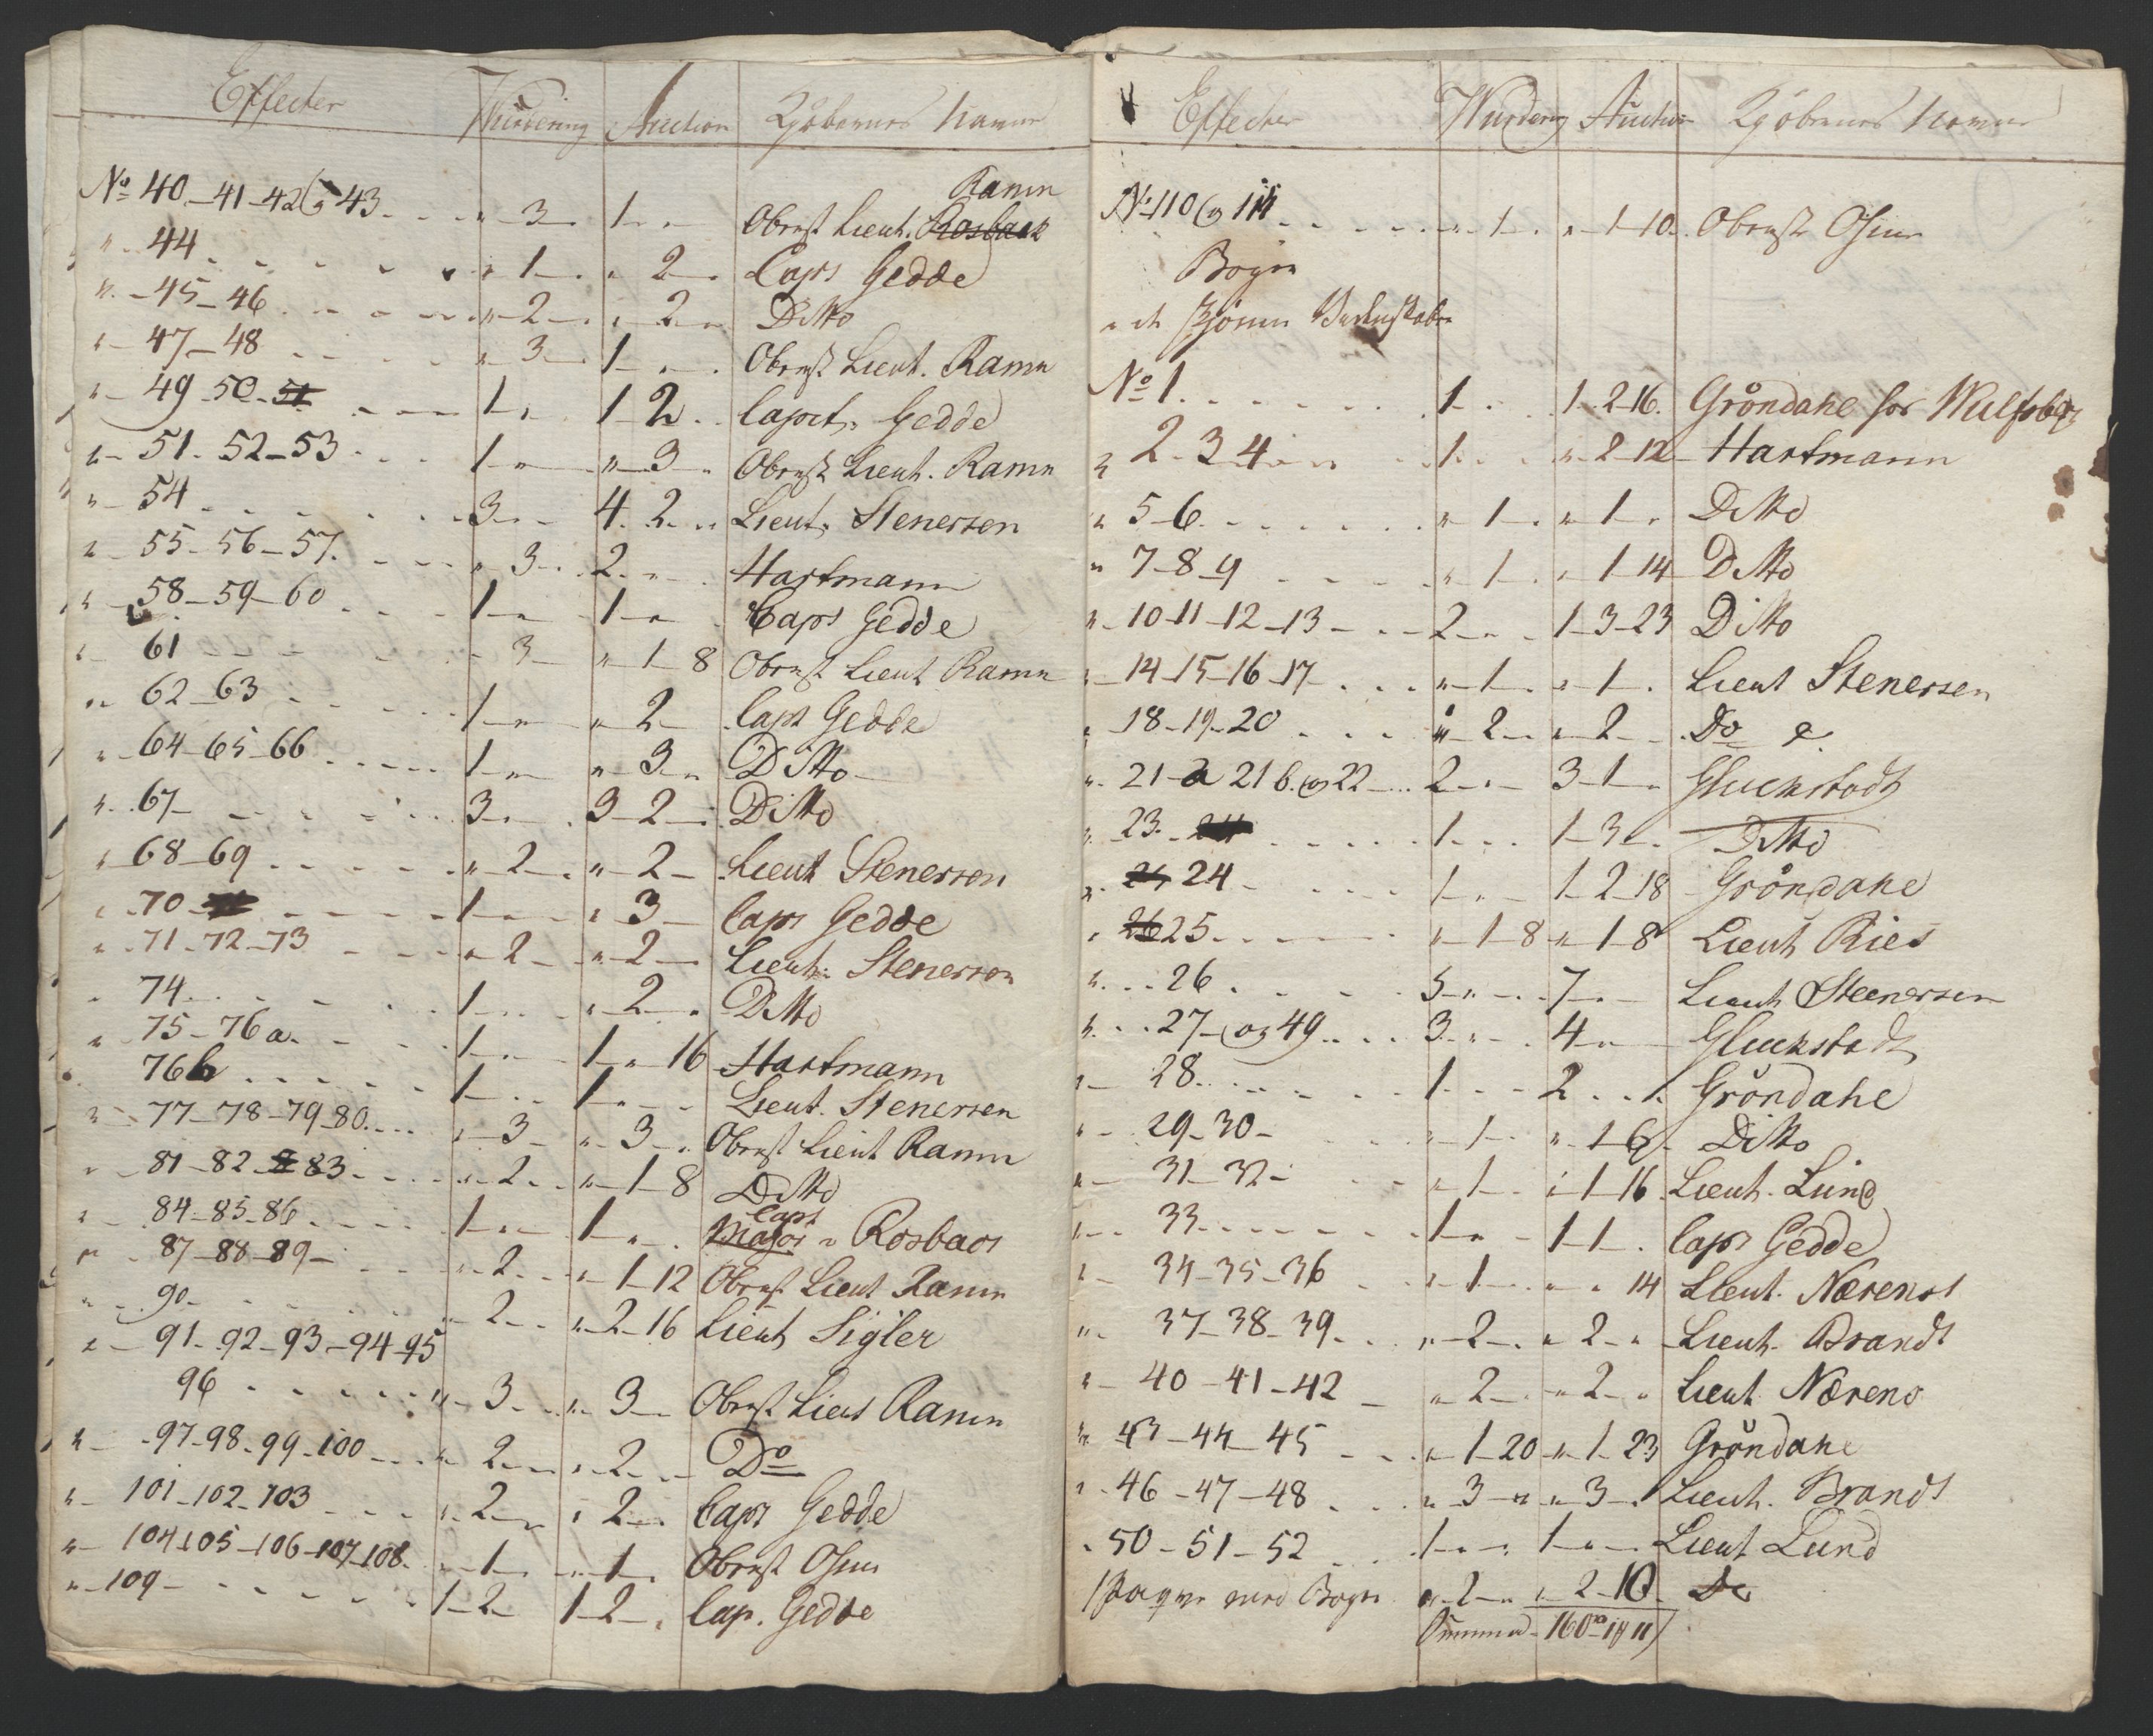 Effecter Wurdering Auction Kjöbernes Navne
Ramm
No 40-41-42 og 43 " 3 " 1 " " Obrst Lieut. Rosback
" 44 " 1 " " 2 " Capt Gedde
" 45-46 " 2 " " 2 " Ditto
" 47-48 " 3 " 1 " " Obrst Lieut. Ramm
" 49-50-51 1 " " 1-2 " Capit. Gedde
" 51-52-53 1 " " " 3 " Obrst Lieut. Ramm
" 54 3 " " 4-2 " Lieut. Stenersen
" 55-56-57 " 3 " 2 " " Hartmann
" 58-59-60 1 " " 1 " " Capt Gedde
" 61 " 3 " " 1-8 Obrst Lieut Ramm
" 62-63 1 " " " 2 " Capt Gedde
" 64-65-66 1 " " " 3 " Ditto
" 67 3 " " 3-2 " Ditto
" 68-69 " 2 " " 2 " Lieut Stenersen
" 70 1 " " " 3 " Capt Gedde
" 71-72-73 " 2 " " 2 " Lieut: Stenersen
" 74 1 " " " 2 " Ditto
" 75-76 a 1 " " 1 " 16 Hartmann
76 b 1 " " 1 " " Lieut. Stenersen
" 77-78-79-80 " 3 " " 3 " Obrst Lieut Ramm
" 81-82-83 " 2 " " 1-8 Ditto
Capt
" 84-85-86 1 " " 1 " " Major v Rosbach
" 87-88-89 " 2 " " 1-12 Obrst Lieut Ramm
" 90 " 2 " " 2-16 Lieut Sigler
" 91-92-93-94-95
96 " 3 " " 3 " Obrst Lieut Ramm
" 97-98-99-100 " 2 " " 2 " Do
" 101-102-103 " 2 " " 2 " Capt Gedde
" 104-105-106-107-108 " 1 " " 1 " Obrst
" 109 1-2 " 1-2 " Cap. Gedde
Effecter Wurdering Auction Kjöbernes Navne
No 110 og 111 " 1 " " 1-10 Obrst
Böger
Videnskaber
No 1 1 " " 1-2-16 Gröndahl for Wulfsberg
" 2-3-4 1 " " " 2-12 Hartmann
" 5-6 " 1 " " 1 " Ditto
" 7-8-9 " 1 " " 1-14 Ditto
" 10-11-12-13 2 " " 1-3-23 Ditto
" 14-15-16-17 " 1 " " 1 " Lieut Stenersen
" 18-19-20 " 2 " " 2 " Do
" 21-a 21 b. og 22 2 " " 3-1 " Gluckstadt
" 23 1 " " 1-3 " Ditto
" 24 1 " " 1-2-18 Gröndahl
" 26 25 " 1-8 " 1-8 Lieut Ries
" 26 5 " " 7 " " Lieut Steenersen
" 27 og 49 3 " " 4 " " Gluckstadt
" 28 1 " " 2 " " Gröndahl
" 29-30 " 1 " " 1-6 Ditto
" 31-32 " 1 " " 1-16 Lieut. Lund
" 33 1 " " 1-1 " Capt Gedde
" 34-35-36 " 1 " " " 14 Lieut. Nærenst
" 37-38-39 " 2 " " 2 " Lieut. Brandt
" 40-41-42 " 2 " " 2 " Lieut Nærens
" 43-44-45 " 1-20 " 1-23 Gröndahl
" 46-47-48 " 3 " " 3 " Lieut. Brandt
" 50-51-52 1 " " 1 " " Lieut Lund
1 med Böger " 2 " " 2-10 Do
Summa 160